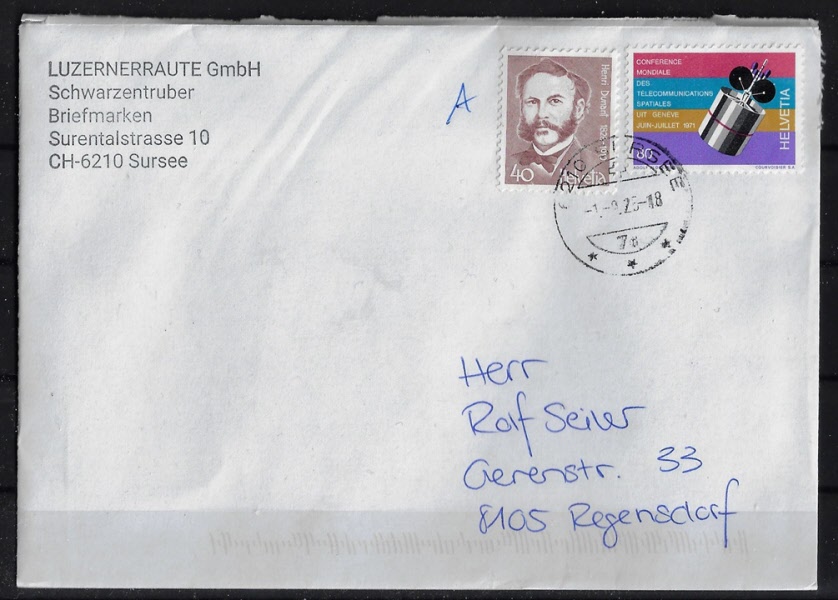 LUZERNERRAUTE GmbH
Schwarzentruber
Briefmarken
Surentalstrasse 10
CH-6210 Sursee
A
Henri Dunant
40 Helvetia
CONFERENCE
MONDIALE
DES
TÉLÉCOMMUNICATIONS
SPATIALES
UIT GENÈVE
JUIN-JUILLET 1971
80
HELVETIA
COURVOISIER S.A.
6210 SURSEE
7a
Herr
Ralf Seiler
Gerenstr. 33
8105 Regensdorf